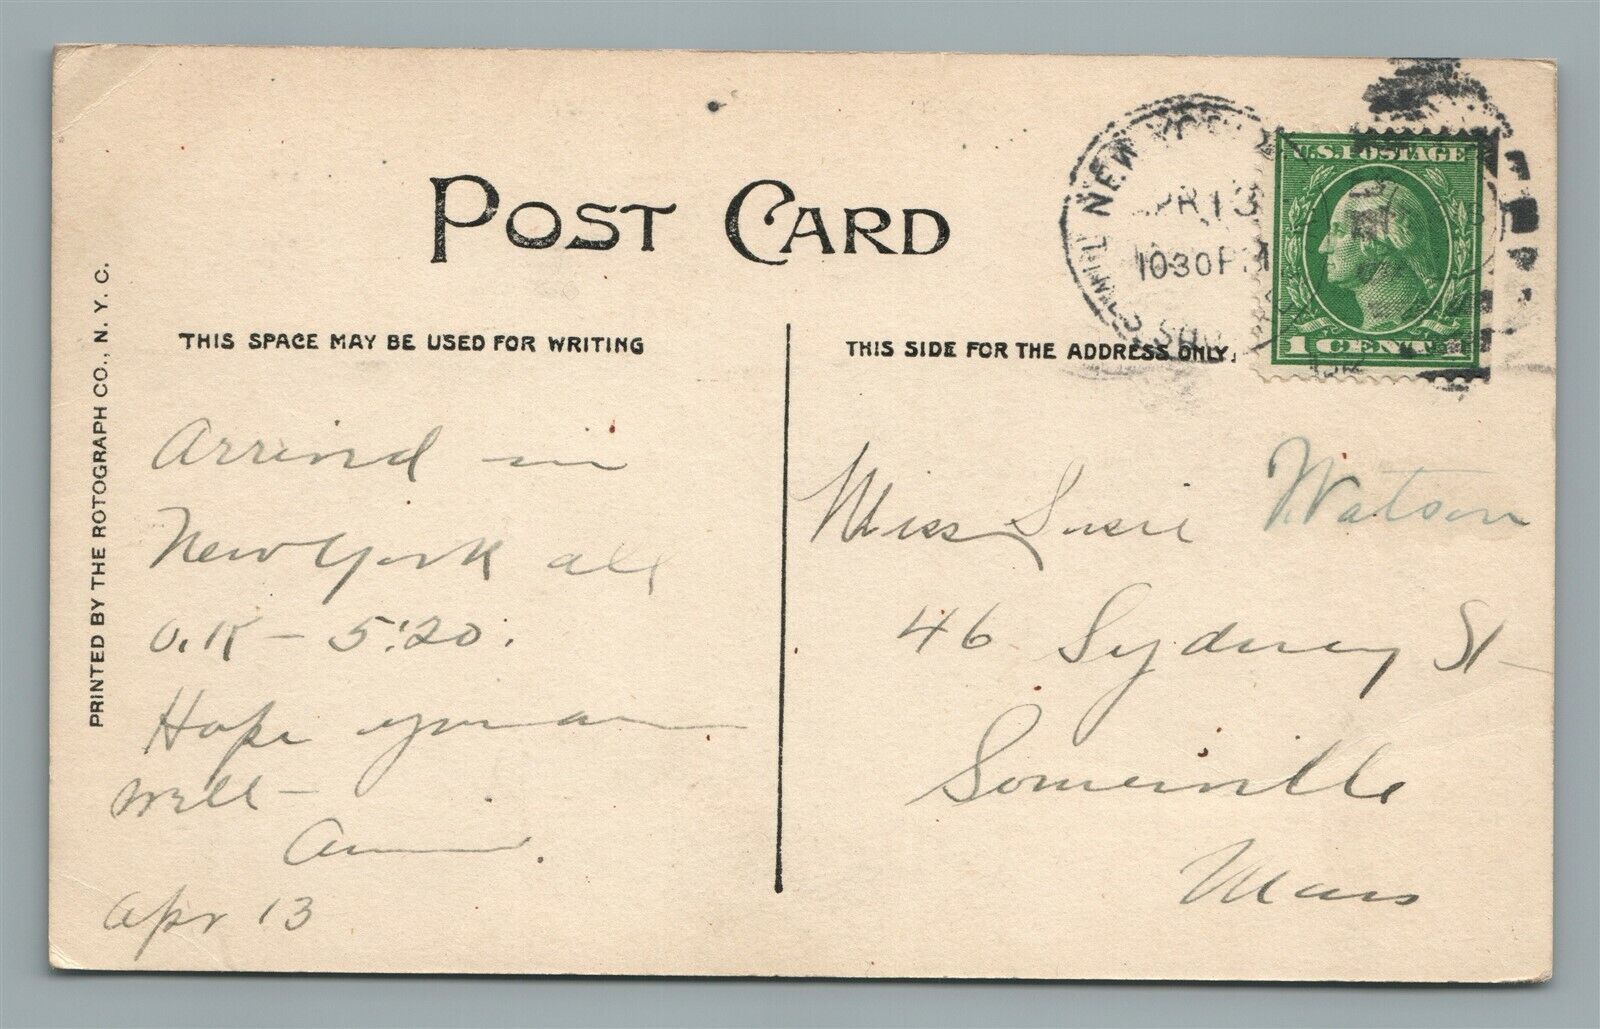 POST CARD
PRINTED BY THE ROTOGRAPH CO., N. Y. C.
THIS SPACE MAY BE USED FOR WRITING
Arrived in
New York all
O.K — 5:20.
Hope you are
well —
Apr 13
THIS SIDE FOR THE ADDRESS ONLY.
NEW YORK
APR 13
1030 PM
U.S. POSTAGE
1 CENT 1
Miss Susie Watson
46 Sydney St
Somerville
Mass